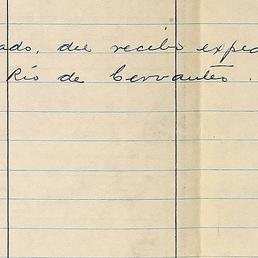 ado, du recibo exped
Río de Cervantes.